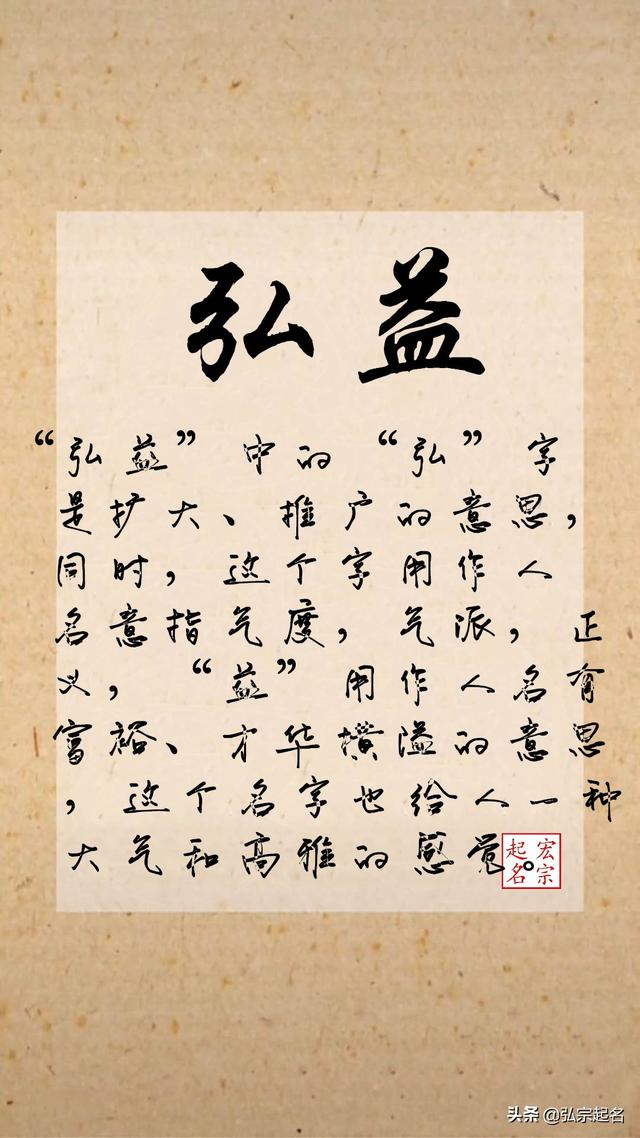 弘益
“弘益”中的“弘”字
是扩大、推广的意思，
同时，这个字用作人
名意指气度，气派，正
义，“益”用作人名有
富裕、才华横溢的意思
，这个名字也给人一种
大气和高雅的感觉。
宏宗
起名
头条 @弘宗起名